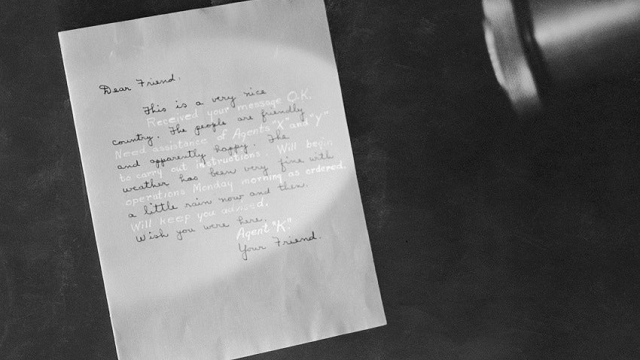 Dear Friend.
This is a very nice
Received your message O.K.
country. The people are friendly
Need assistance of Agents "X" and "Y"
and apparently happy. The
to carry out instructions. Will begin
weather has been very fine with
operations Monday morning as ordered.
a little rain now and then.
Will keep you advised.
Wish you were here.
Agent "K".
Your Friend.